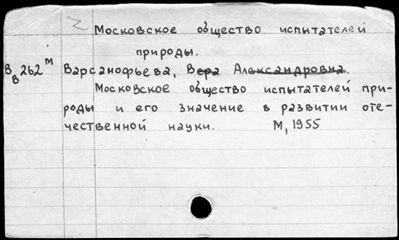 Московское общество испытателей
природы.
В В 262 м Варсанофьева, Вера Александровна.
Московское общество испытателей при-
роды и его значение в развитии оте-
чественной науки. М, 1955